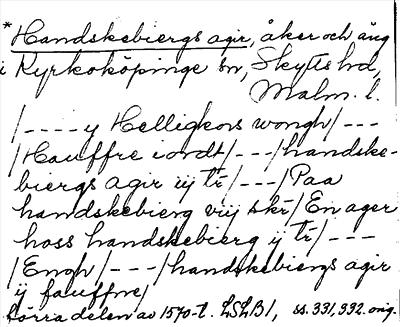 * Handskebiergs agir, åker och äng
i Kyrkoköpinge sn, Skytts hd,
Malm. l.
/----y Helligkors wongh/---
/Hauffre iordt/---/handske-
biergs agir iij tr/---/Paa
handskebierg viij skr/En ager
hoss handskebierg ij tr/---
/Engh/---/handskebiergs agir
ij fauffne/
Förra delen av 1570-t. LSLB1, ss. 331, 332. orig.